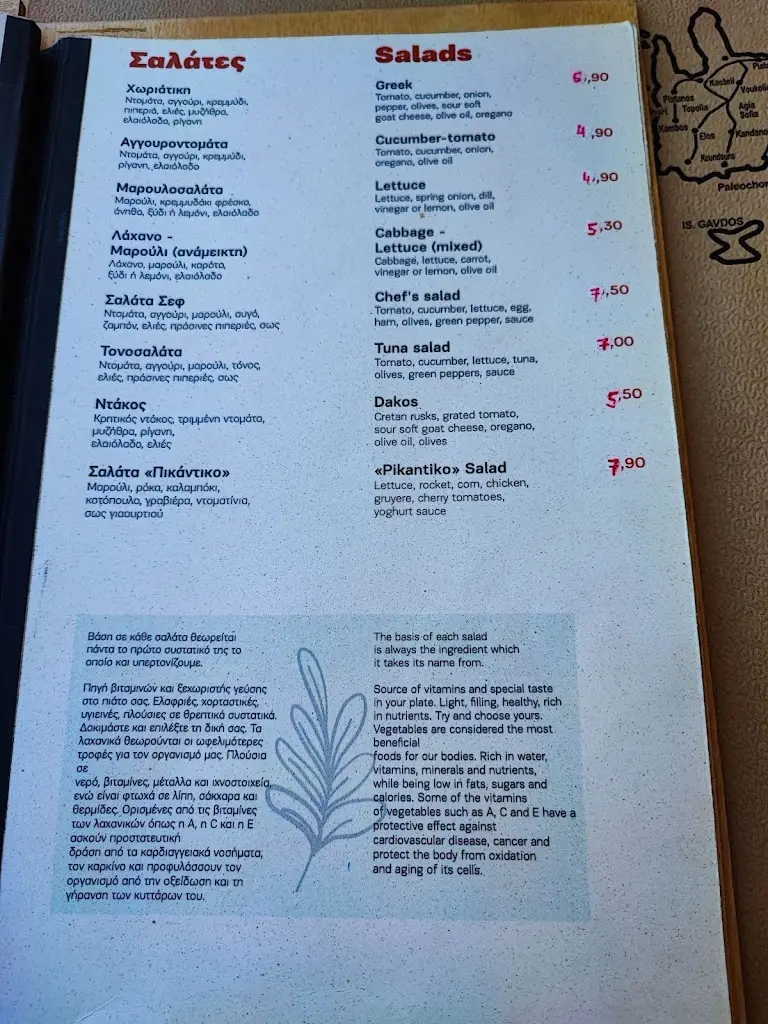 Σαλάτες
Χωριάτικη
Ντομάτα, αγγούρι, κρεμμύδι,
πιπεριά, ελιές, μυζήθρα,
ελαιόλαδο, ρίγανη
Αγγουροντομάτα
Ντομάτα, αγγούρι, κρεμμύδι,
ρίγανη, ελαιόλαδο
Μαρουλοσαλάτα
Μαρούλι, κρεμμυδάκι φρέσκο,
άνηθο, ξύδι ή λεμόνι, ελαιόλαδο
Λάχανο -
Μαρούλι (ανάμεικτη)
Λάχανο, μαρούλι, καρότο,
ξύδι ή λεμόνι, ελαιόλαδο
Σαλάτα Σεφ
Ντομάτα, αγγούρι, μαρούλι, αυγό,
ζαμπόν, ελιές, πράσινες πιπεριές, σως
Τονοσαλάτα
Ντομάτα, αγγούρι, μαρούλι, τόνος,
ελιές, πράσινες πιπεριές, σως
Ντάκος
Κρητικός ντάκος, τριμμένη ντομάτα,
μυζήθρα, ρίγανη,
ελαιόλαδο, ελιές
Σαλάτα «Πικάντικο»
Μαρούλι, ρόκα, καλαμπόκι,
κοτόπουλο, γραβιέρα, ντοματίνια,
σως γιαουρτιού
Salads
Greek
,90
Tomato, cucumber, onion,
pepper, olives, sour soft
goat cheese, olive oil, oregano
Cucumber-tomato
4,90
Tomato, cucumber, onion,
oregano, olive oil
Lettuce
4,90
Lettuce, spring onion, dill,
vinegar or lemon, olive oil
Cabbage -
5,30
Lettuce (mixed)
Cabbage, lettuce, carrot,
vinegar or lemon, olive oil
Chef's salad
7,50
Tomato, cucumber, lettuce, egg,
ham, olives, green pepper, sauce
Tuna salad
7,00
Tomato, cucumber, lettuce, tuna,
olives, green peppers, sauce
Dakos
5,50
Cretan rusks, grated tomato,
sour soft goat cheese, oregano,
olive oil, olives
«Pikantiko» Salad
7,90
Lettuce, rocket, corn, chicken,
gruyere, cherry tomatoes,
yoghurt sauce
Βάση σε κάθε σαλάτα θεωρείται
πάντα το πρώτο συστατικό της το
οποίο και υπερτονίζουμε.
Πηγή βιταμινών και ξεχωριστής γεύσης
στο πιάτο σας. Ελαφριές, χορταστικές,
υγιεινές, πλούσιες σε θρεπτικά συστατικά.
Δοκιμάστε και επιλέξτε τη δική σας. Τα
λαχανικά θεωρούνται οι ωφελιμότερες
τροφές για τον οργανισμό μας. Πλούσια
σε
νερό, βιταμίνες, μέταλλα και ιχνοστοιχεία,
ενώ είναι φτωχά σε λίπη, σάκχαρα και
θερμίδες. Ορισμένες από τις βιταμίνες
των λαχανικών όπως η Α, η C και η Ε
ασκούν προστατευτική
δράση από τα καρδιαγγειακά νοσήματα,
τον καρκίνο και προφυλάσσουν τον
οργανισμό από την οξείδωση και τη
γήρανση των κυττάρων του.
The basis of each salad
is always the ingredient which
it takes its name from.
Source of vitamins and special taste
in your plate. Light, filling, healthy, rich
in nutrients. Try and choose yours.
Vegetables are considered the most
beneficial
foods for our bodies. Rich in water,
vitamins, minerals and nutrients,
while being low in fats, sugars and
calories. Some of the vitamins
of vegetables such as A, C and E have a
protective effect against
cardiovascular disease, cancer and
protect the body from oxidation
and aging of its cells.
Kasteli
Platanos
Topolia
Agia
Sofia
Kambos
Elos
Koundoura
Paleochor
IS. GAVDOS